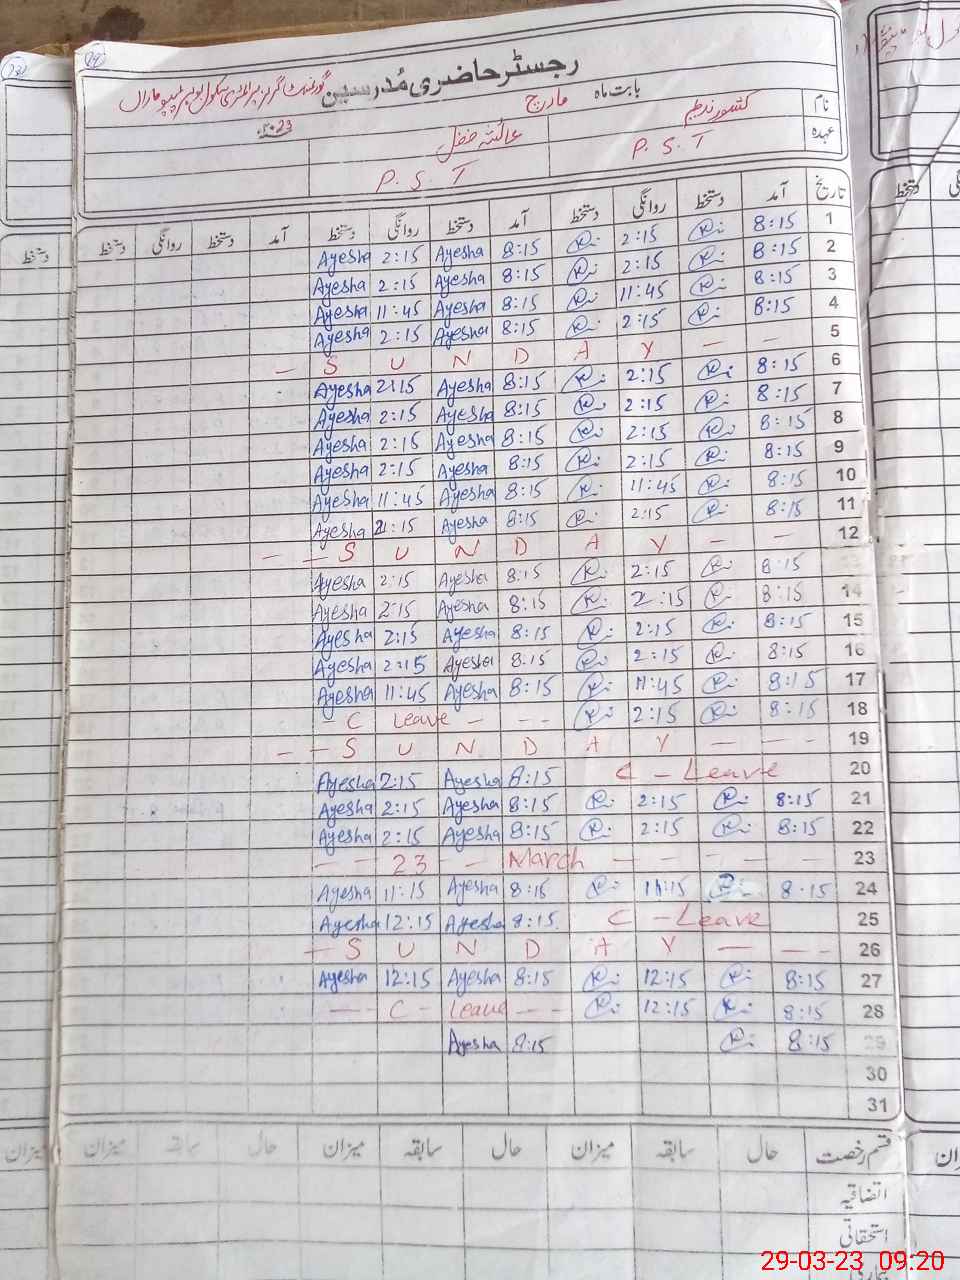 24
رجسٹر حاضری مُدرسین
بابت ماہ مارچ
2023
نام کشور ندیم عائشہ فضل
عہدہ P.S.T P.S.T
تاریخ آمد دستخط روانگی دستخط آمد دستخط روانگی دستخط آمد دستخط روانگی دستخط
1 8:15 2:15 8:15 Ayesha 2:15 Ayesha
2 8:15 2:15 8:15 Ayesha 2:15 Ayesha
3 8:15 11:45 8:15 Ayesha 11:45 Ayesha
4 8:15 2:15 8:15 Ayesha 2:15 Ayesha
5 - - S U N D A Y -
6 8:15 2:15 8:15 Ayesha 2:15 Ayesha
7 8:15 2:15 8:15 Ayesha 2:15 Ayesha
8 8:15 2:15 8:15 Ayesha 2:15 Ayesha
9 8:15 2:15 8:15 Ayesha 2:15 Ayesha
10 8:15 11:45 8:15 Ayesha 11:45 Ayesha
11 8:15 2:15 8:15 Ayesha 2:15 Ayesha
12 - - S U N D A Y - -
8:15 2:15 8:15 Ayesha 2:15 Ayesha
14 8:15 2:15 8:15 Ayesha 2:15 Ayesha
15 8:15 2:15 8:15 Ayesha 2:15 Ayesha
16 8:15 2:15 8:15 Ayesha 2:15 Ayesha
17 8:15 11:45 8:15 Ayesha 11:45 Ayesha
18 8:15 2:15 C Leave - - - -
19 - - - S U N D A Y - -
20 C - Leave 8:15 Ayesha 2:15 Ayesha
21 8:15 2:15 8:15 Ayesha 2:15 Ayesha
22 8:15 2:15 8:15 Ayesha 2:15 Ayesha
23 - - 23 - - March - - - - - -
24 8:15 11:15 8:15 Ayesha 11:15 Ayesha
25 C - Leave 8:15 Ayesha 12:15 Ayesha
26 - S U N D A Y - - - -
27 8:15 12:15 8:15 Ayesha 12:15 Ayesha
28 8:15 12:15 - - - C - Leave - - -
29 8:15 8:15 Ayesha
30
31
قسم رخصت حال سابقہ میزان حال سابقہ میزان حال سابقہ میزان
اتفاقیہ
استحقاقی
29-03-23 09:20